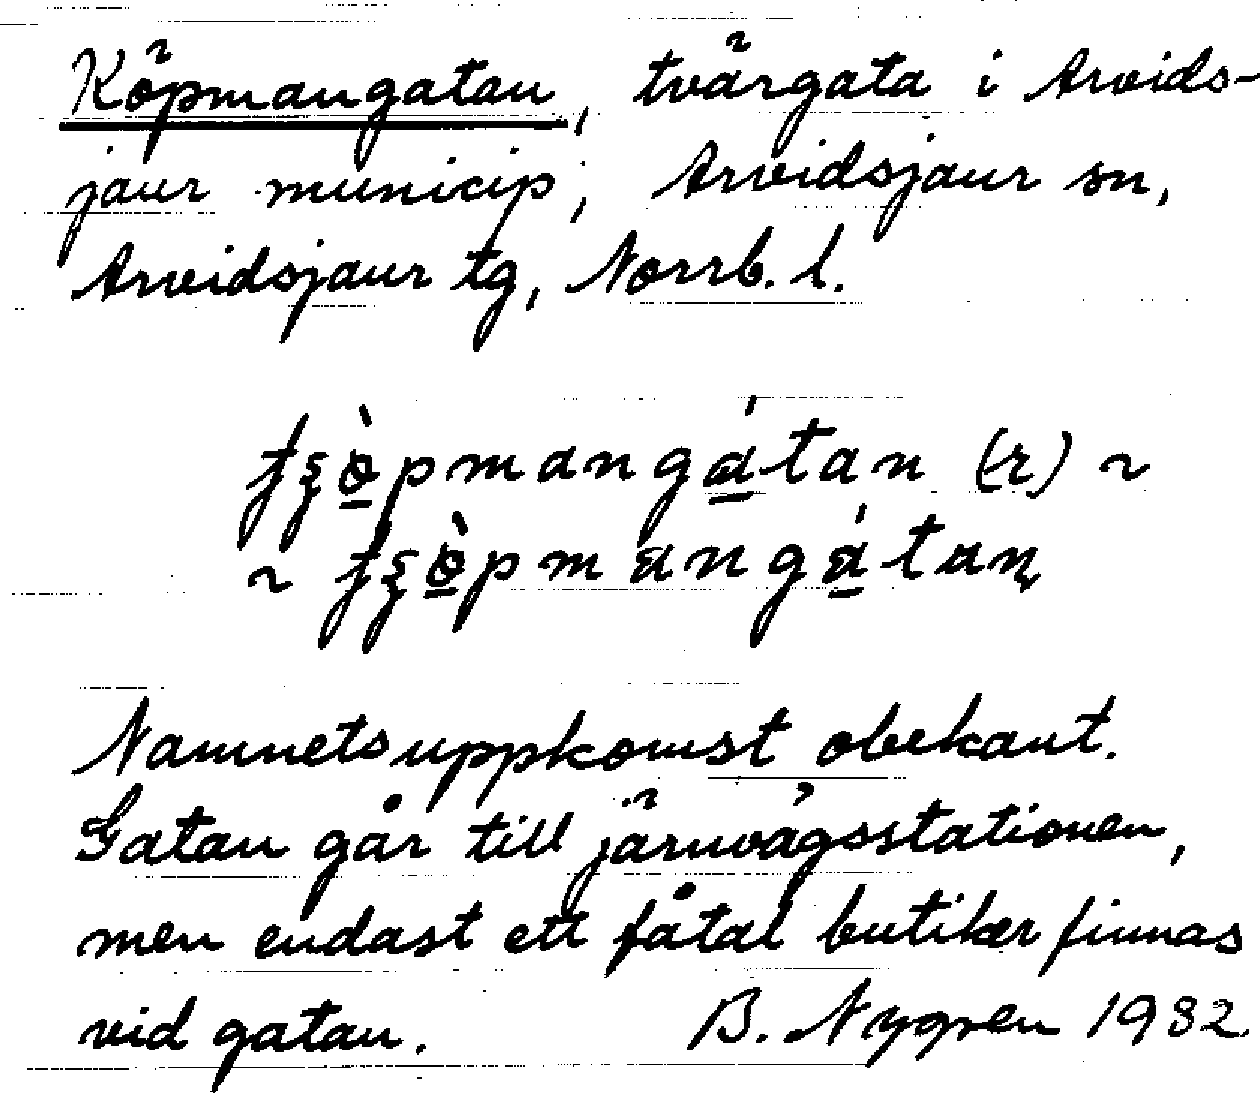 Köpmangatan, tvärgata i Arvids-
jaur municip, Arvidsjaur sn,
Arvidsjaur tg, Norrb. l.
ʃʒö̀pmangátan (r) ~
~ ʃʒö̀pmangátaɳ
Namnets uppkomst obekant.
Gatan går till järnvägsstationen,
men endast ett fåtal butiker finnas
vid gatan. B. Nygren 1932